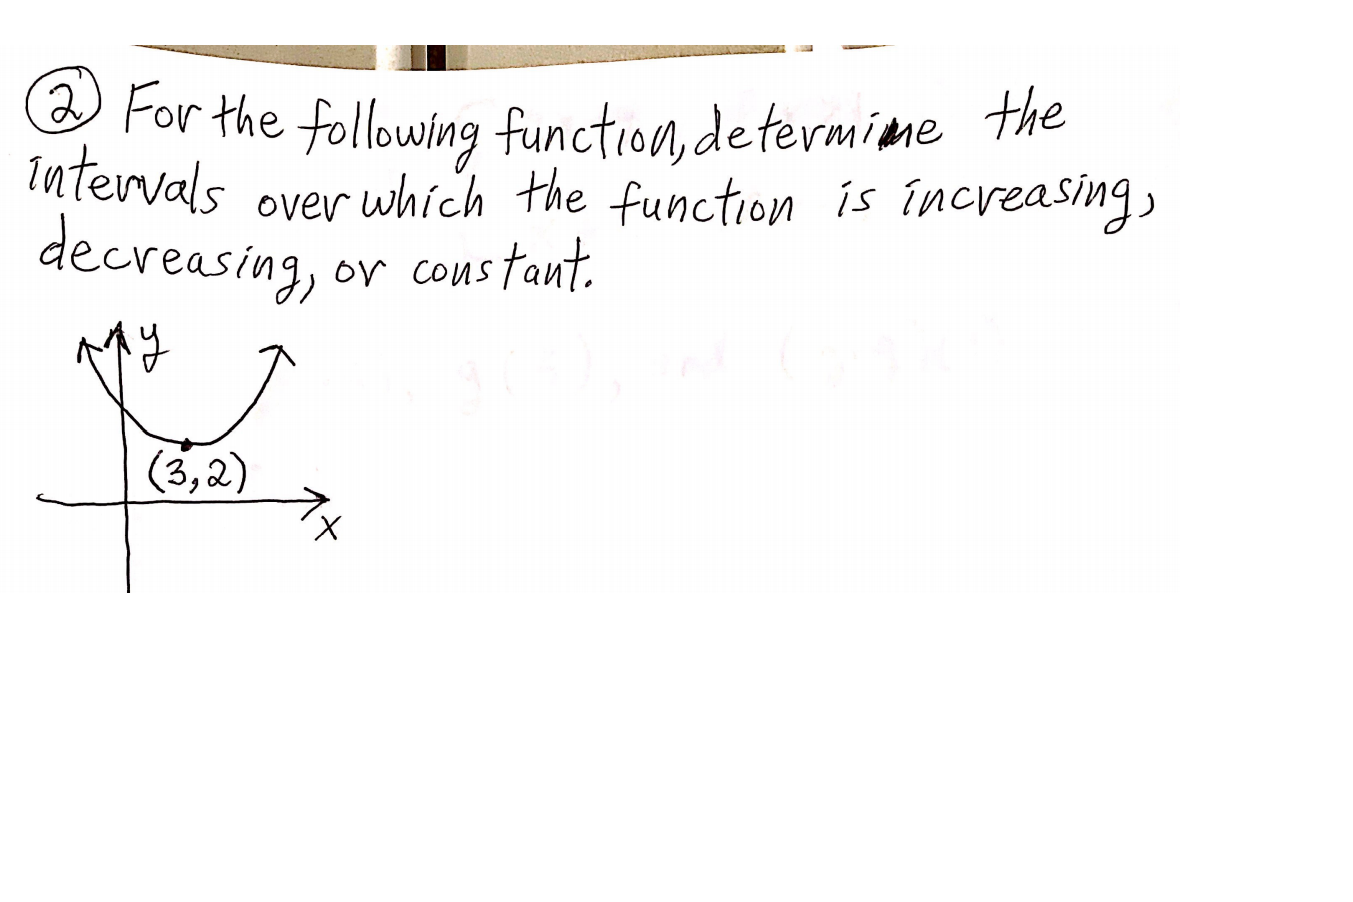 ② For the following function, determine the
intervals over which the function is increasing,
decreasing, or constant.
y
(3,2)
x